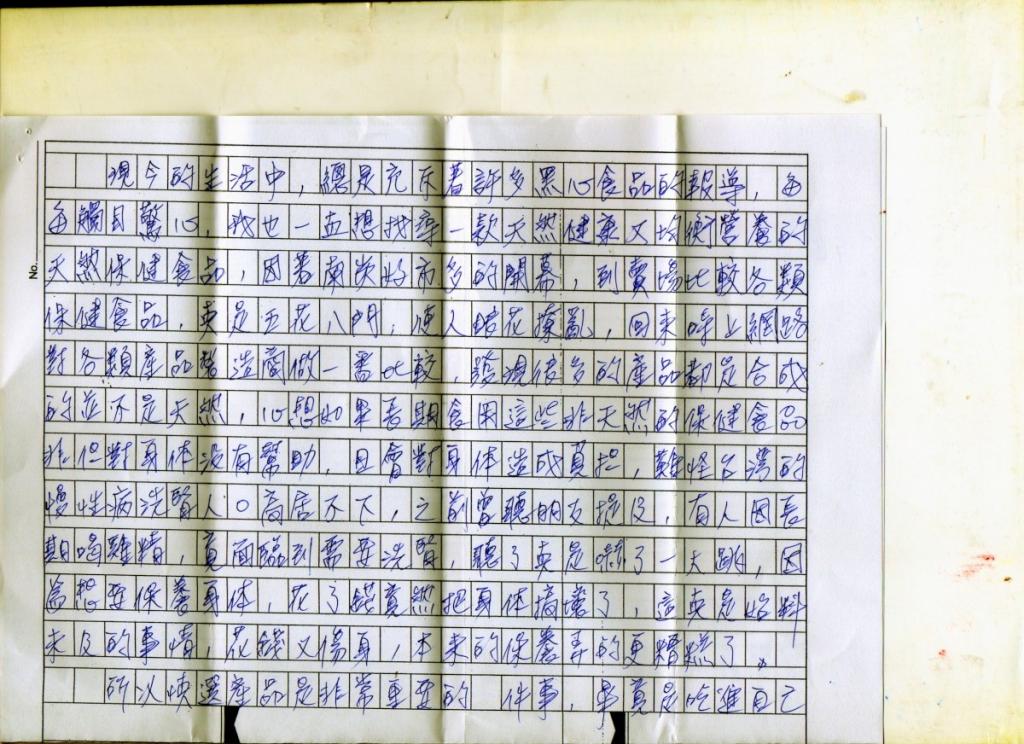 No.
現今的生活中，總是充斥著許多黑心食品的報導，每
每觸目驚心，我也一直想找尋一款天然健康又均衡營養的
天然保健食品，因著南茨好市多的開幕，到賣場比較各類
保健食品，真是五花八門，使人眼花撩亂，回來時上網路
對各類產品製造商做一番比較，發現很多的產品都是合成
的並不是天然，心想如果長期食用這些非天然的保健食品
非但對身体沒有幫助，且會對身体造成負担，難怪台灣的
慢性病洗腎人口高居不下，之前曾聽朋友提及，有人因長
期喝雞精，竟面臨到需要洗腎，聽了真是嚇了一大跳，因
為想要保養身体，花了錢竟然把身体搞壞了，這真是始料
未及的事情，花錢又傷身，本来的保養弄的更糟糕了。
所以慎選產品是非常重要的 件事，畢竟是吃進自己